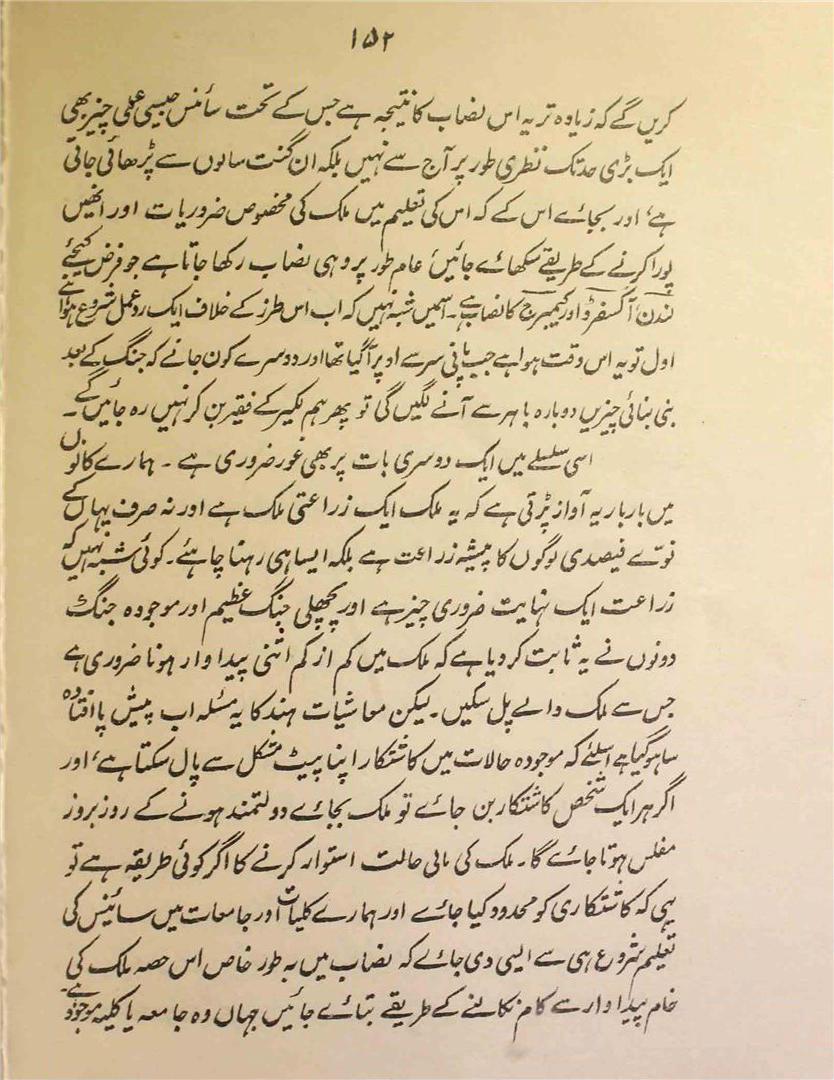 ۱۵۲
کریں گے کہ زیادہ تر یہ اس نصاب کا نتیجہ ہے جس کے تحت سائنس جیسی عملی چیز بھی
ایک بڑی حد تک نظری طور پر آج سے نہیں بلکہ ان گنت سالوں سے پڑھائی جاتی
ہے، اور بجائے اس کے کہ اس کی تعلیم میں ملک کی مخصوص ضروریات اور انھیں
پورا کرنے کے طریقے سکھائے جائیں، عام طور پر وہی نصاب رکھا جاتا ہے جو فرض کیجئے
لندن، آکسفرڈ اور کیمبرج کا نصاب ہے۔ اسمیں شبہ نہیں کہ اب اس طرز کے خلاف ایک ردعمل شروع ہوا ہے
اول تو یہ اس وقت ہوا ہے جب پانی سر سے اوپر آگیا تھا اور دوسرے کون جانے کہ جنگ کے بعد
بنی بنائی چیزیں دوبارہ باہر سے آنے لگیں گی تو پھر ہم لکیر کے فقیر بن کر نہیں رہ جائیں گے۔
اسی سلسلے میں ایک دوسری بات پر بھی غور ضروری ہے۔ ہمارے کانوں
میں بار بار یہ آواز پڑتی ہے کہ یہ ملک ایک زراعتی ملک ہے اور نہ صرف یہاں کے
نوّے فیصدی لوگوں کا پیشہ زراعت ہے بلکہ ایسا ہی رہنا چاہئے۔ کوئی شبہ نہیں کہ
زراعت ایک نہایت ضروری چیز ہے اور پچھلی جنگ عظیم اور موجودہ جنگ
دونوں نے یہ ثابت کر دیا ہے کہ ملک میں کم از کم اتنی پیداوار ہونا ضروری ہے
جس سے ملک والے پل سکیں۔ لیکن معاشیات ہند کا یہ مسئلہ اب پیش پا افتادہ
سا ہوگیا ہے اسلئے کہ موجودہ حالات میں کاشتکار اپنا پیٹ مشکل سے پال سکتا ہے، اور
اگر ہر ایک شخص کاشتکار بن جائے تو ملک بجائے دولتمند ہونے کے روز بروز
مفلس ہوتا جائے گا۔ ملک کی مالی حالت استوار کرنے کا اگر کوئی طریقہ ہے تو
یہی کہ کاشتکاری کو محدود کیا جائے اور ہمارے کلیات اور جامعات میں سائینس کی
تعلیم شروع ہی سے ایسی دی جائے کہ نصاب میں بہ طور خاص اس حصہ ملک کی
خام پیداوار سے کام نکالنے کے طریقے بتائے جائیں جہاں وہ جامعہ یا کلیہ موجود ہے۔